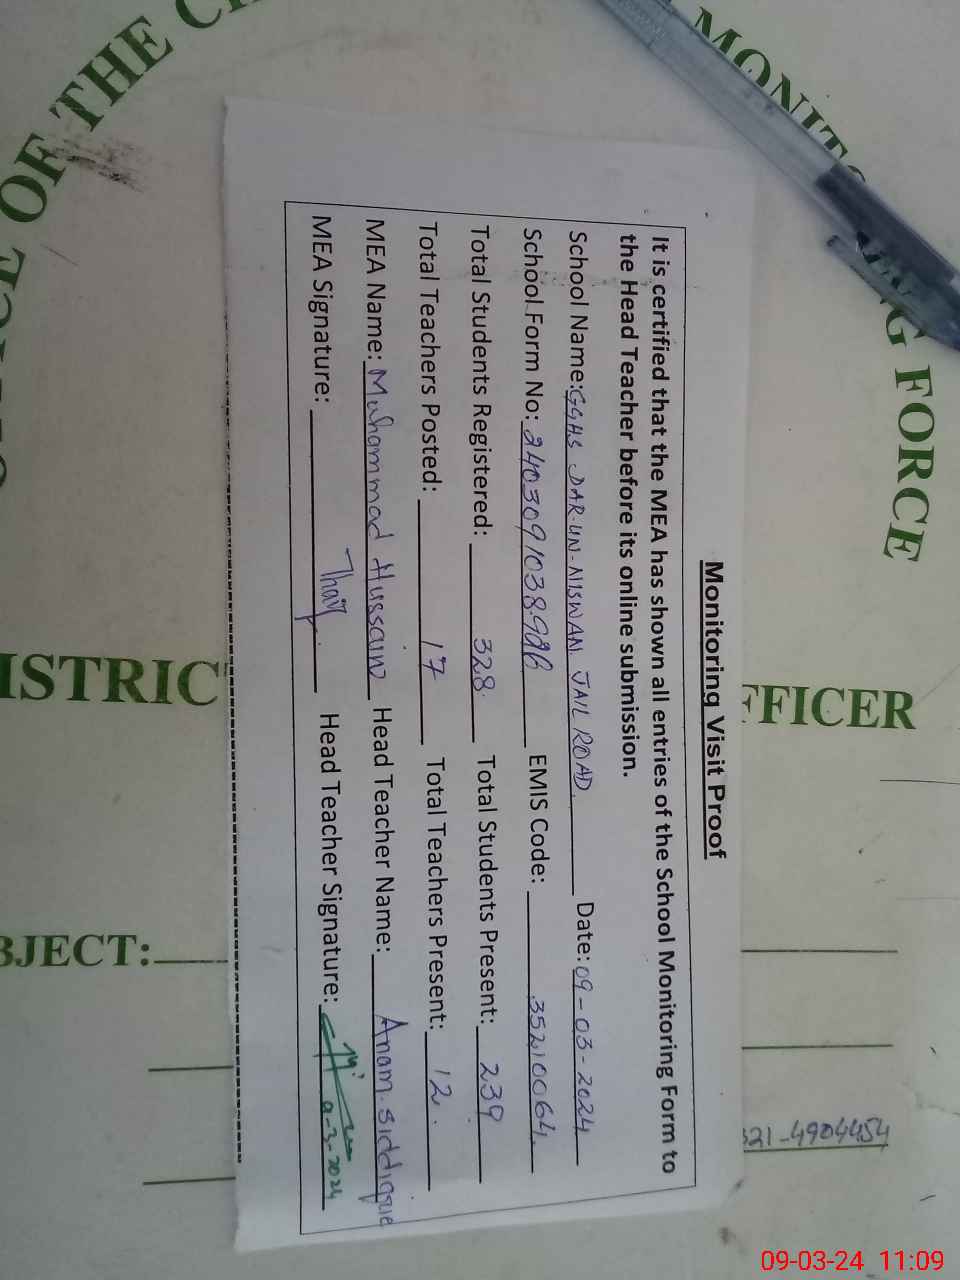 Monitoring Visit Proof
It is certified that the MEA has shown all entries of the School Monitoring Form to
the Head Teacher before its online submission.
School Name: GGHS DAR-UN-NISWAN JAIL ROAD. Date: 09-03-2024
School Form No: EMIS Code: 35210064
Total Students Registered: 328. Total Students Present: 239
Total Teachers Posted: 17 Total Teachers Present: 12.
MEA Name: Muhammad Hussain Head Teacher Name: Anam.siddiqque
MEA Signature: Head Teacher Signature: 9-3-2024
OF THE
MONITORING FORCE
ISTRIC FFICER
BJECT:
321-4904454
09-03-24 11:09